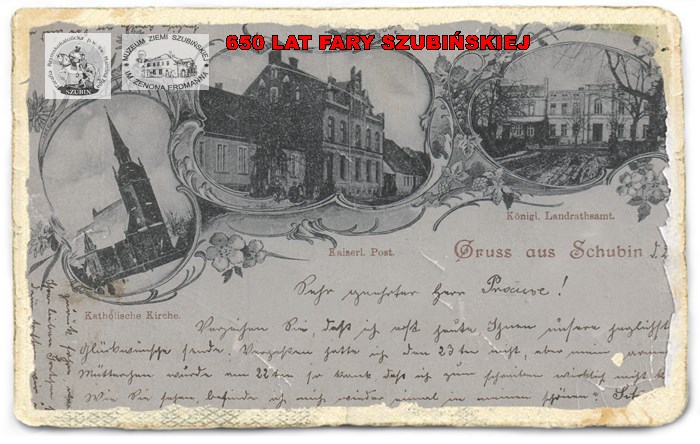 650 LAT FARY SZUBIŃSKIEJ
MUZEUM ZIEMI SZUBIŃSKIEJ
IM. ZENONA ERDMANNA
SZUBIN
Königl. Landrathsamt.
Kaiserl. Post.
Gruss aus Schubin
Katholische Kirche.
Sehr geehrter Herr
Verzeihen Sie, daß ich erst heute Ihnen unsere
Glückwünsche sende. Vergessen hatte ich den 23ten nicht, aber mein armes
Mütterchen wurde am 22ten so krank daß ich zum schreiben wirklich nicht
Wie Sie sehen, befinde ich mich wieder einmal in meinem schönen?